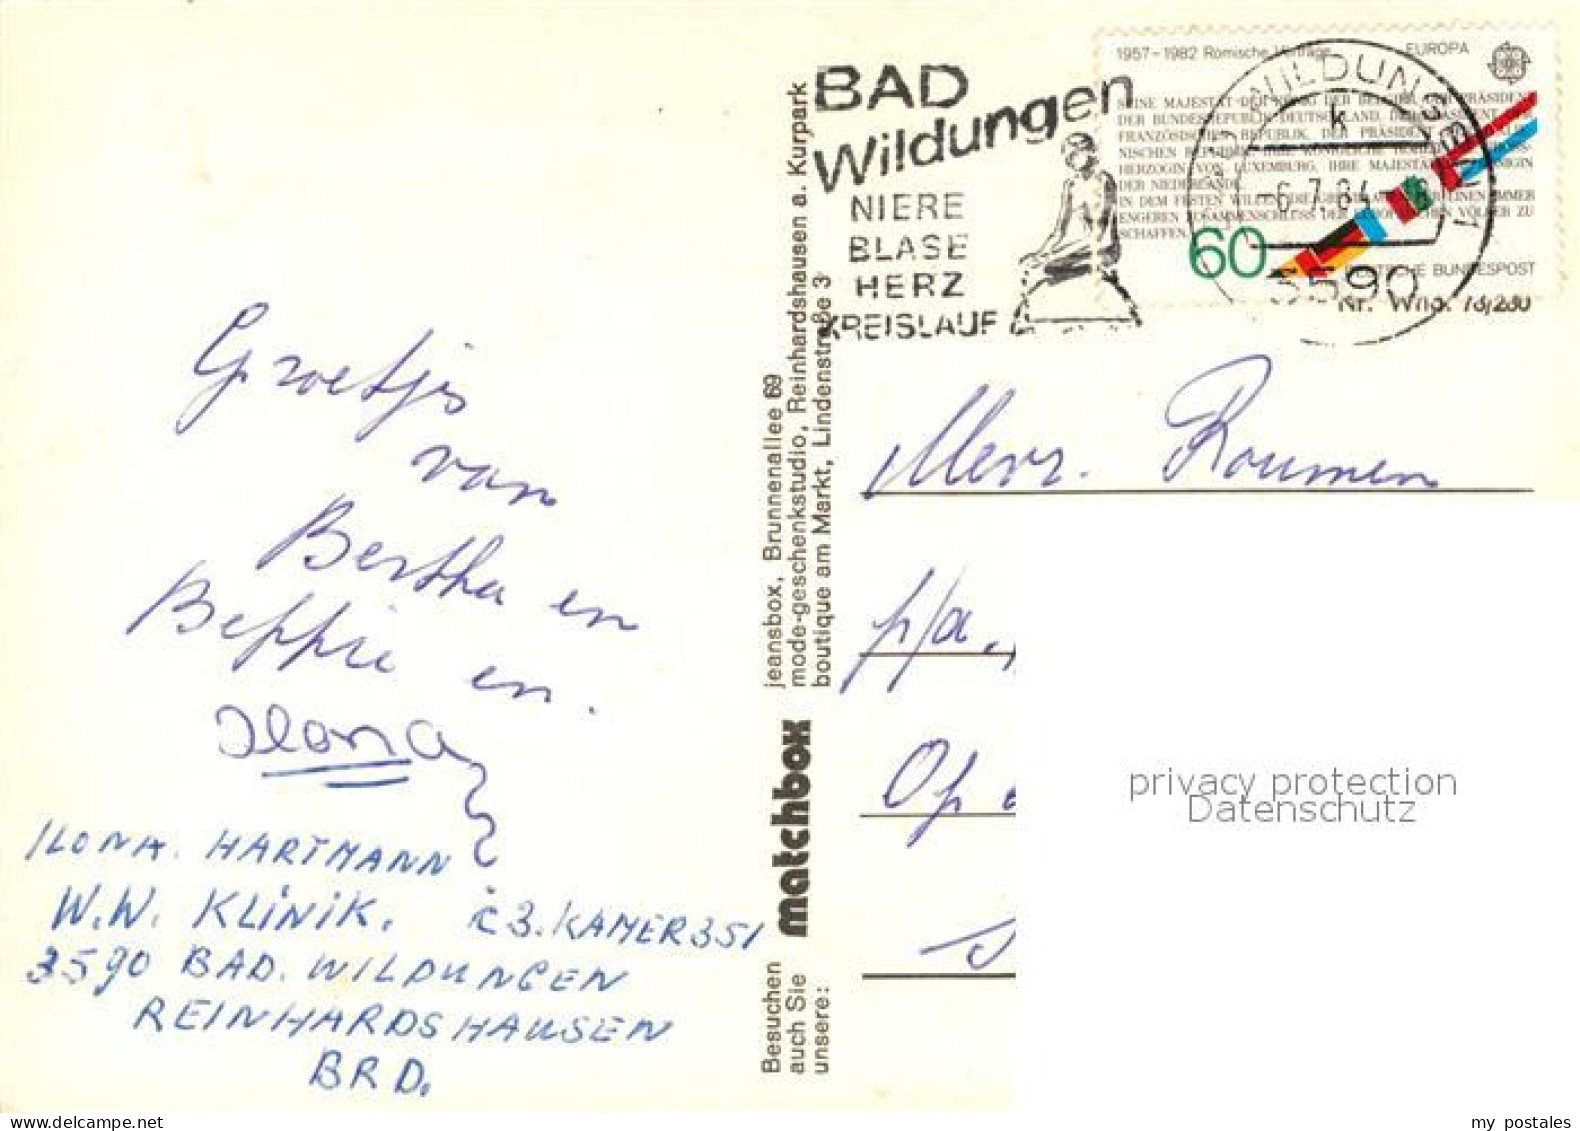 Groetjes
van
Bertha en
Beppie en.
Ilona
ILONA. HARTMANN
W.W. KLINIK. C3. KAMER 351
3590 BAD. WILDUNGEN
REINHARDSHAUSEN
BRD.
Besuchen
auch Sie
unsere:
matchbox
jeansbox, Brunnenallee 69
mode-geschenkstudio, Reinhardshausen a. Kurpark
boutique am Markt, Lindenstraße 3
BAD
Wildungen
NIERE
BLASE
HERZ
KREISLAUF
1957-1982 Römische Verträge EUROPA
SEINE MAJESTÄT DER KÖNIG DER BELGIER, DER PRÄSIDENT
DER BUNDESREPUBLIK DEUTSCHLAND, DER PRÄSIDENT DER
FRANZÖSISCHEN REPUBLIK, DER PRÄSIDENT DER ITALIE-
NISCHEN REPUBLIK, IHRE KÖNIGLICHE HOHEIT DIE GROSS-
HERZOGIN VON LUXEMBURG, IHRE MAJESTÄT DIE KÖNIGIN
DER NIEDERLANDE.
IN DEM FESTEN WILLEN, DIE GRUNDLAGEN FÜR EINEN IMMER
ENGEREN ZUSAMMENSCHLUSS DER EUROPÄISCHEN VÖLKER ZU
SCHAFFEN.
60
DEUTSCHE BUNDESPOST
BAD WILDUNGEN 1
k
-6.7.84-
3590
Nr. Wild. 78/230
Mevr. Roumen
p/a.
Op
privacy protection
Datenschutz
my postales